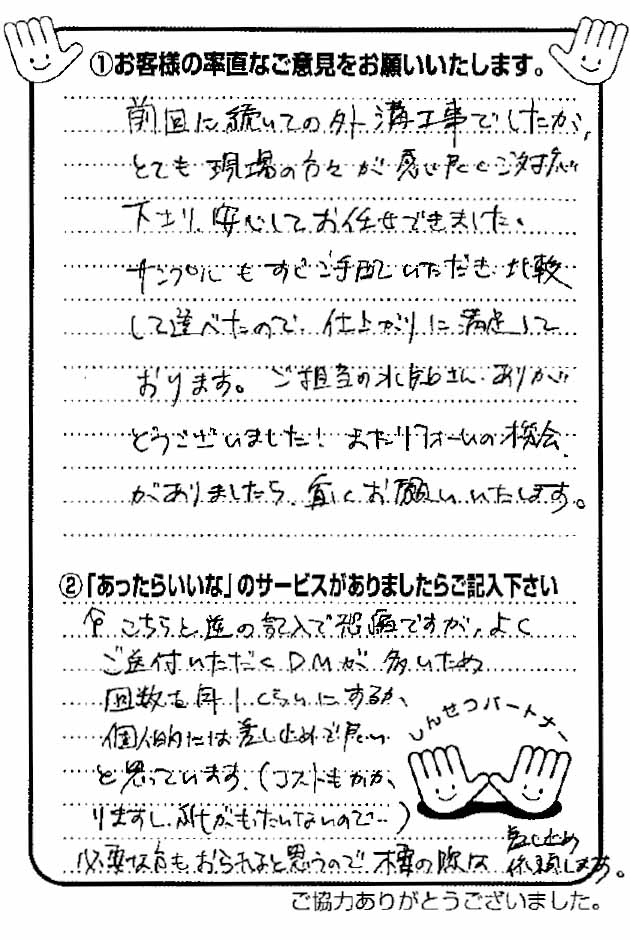 ①お客様の率直なご意見をお願いいたします。
前回に続いての外溝工事でしたが、
とても現場の方々が感じ良くご対応
下さり、安心してお任せできました。
サンプルもすぐご手配いただき、比較
して選べたので、仕上がりに満足して
おります。ご担当の水知さん、ありが
とうございました！またリフォームの機会
がありましたら、宜しくお願いいたします。
②「あったらいいな」のサービスがありましたらご記入下さい
↑こちらと逆の記入で恐縮ですが、よく
ご送付いただくDMが多いため
回数を年1くらいにするか、
個人的には差し止めで良い
と思っています。（コストもかか
りますし、紙がもったいないので…）
必要な方もおられると思うので、 の際は
差し止め
依頼します。
しんせつパートナー
ご協力ありがとうございました。